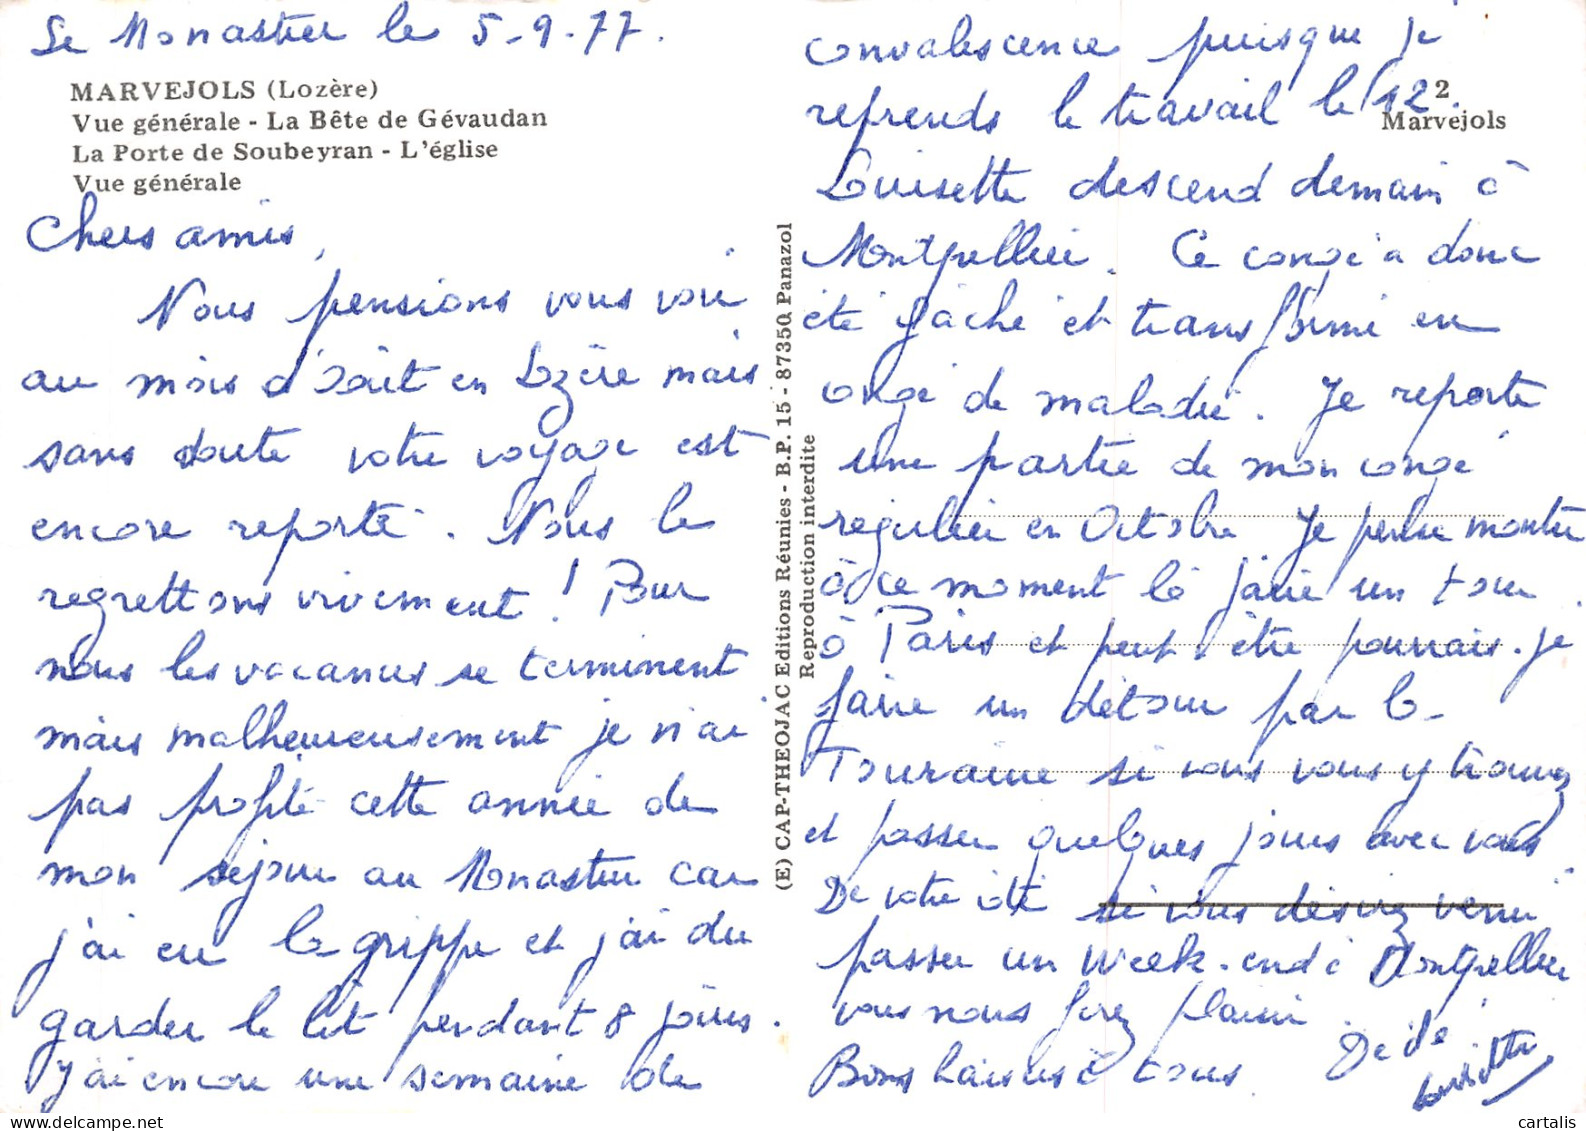 Le Monastier le 5-9-77.
MARVEJOLS (Lozère)
Vue générale - La Bête de Gévaudan
La Porte de Soubeyran - L'église
Vue générale
Chers amis,
Nous pensions vous voir
au mois d'Août en Lozère mais
sans doute votre voyage est
encore reporté. Nous le
regrettons vivement ! Pour
nous les vacances se terminent
mais malheureusement je n'ai
pas profité cette année de
mon séjour au Monastier car
j'ai eu la grippe et j'ai du
garder le lit pendant 8 jours.
J'ai encore une semaine de
(E) CAP-THEOJAC Editions Réunies - B.P. 15 - 87350 Panazol
Reproduction interdite
2
Marvejols
convalescence puisque je
reprends le travail le 12.
Louisette descend demain à
Montpellier. Ce congé a donc
été gâché et transformé en
congé de maladie. Je reporte
une partie de mon congé
régulier en Octobre. Je pense monter
à ce moment là faire un tour
à Paris et peut être pourrais-je
faire un détour par la
Touraine si vous vous y trouvez
et passer quelques jours avec vous
De votre côté si vous désirez venir
passer un week-end à Montpellier
vous nous ferez plaisir.
Bons baisers à tous
Dédé
Louisette